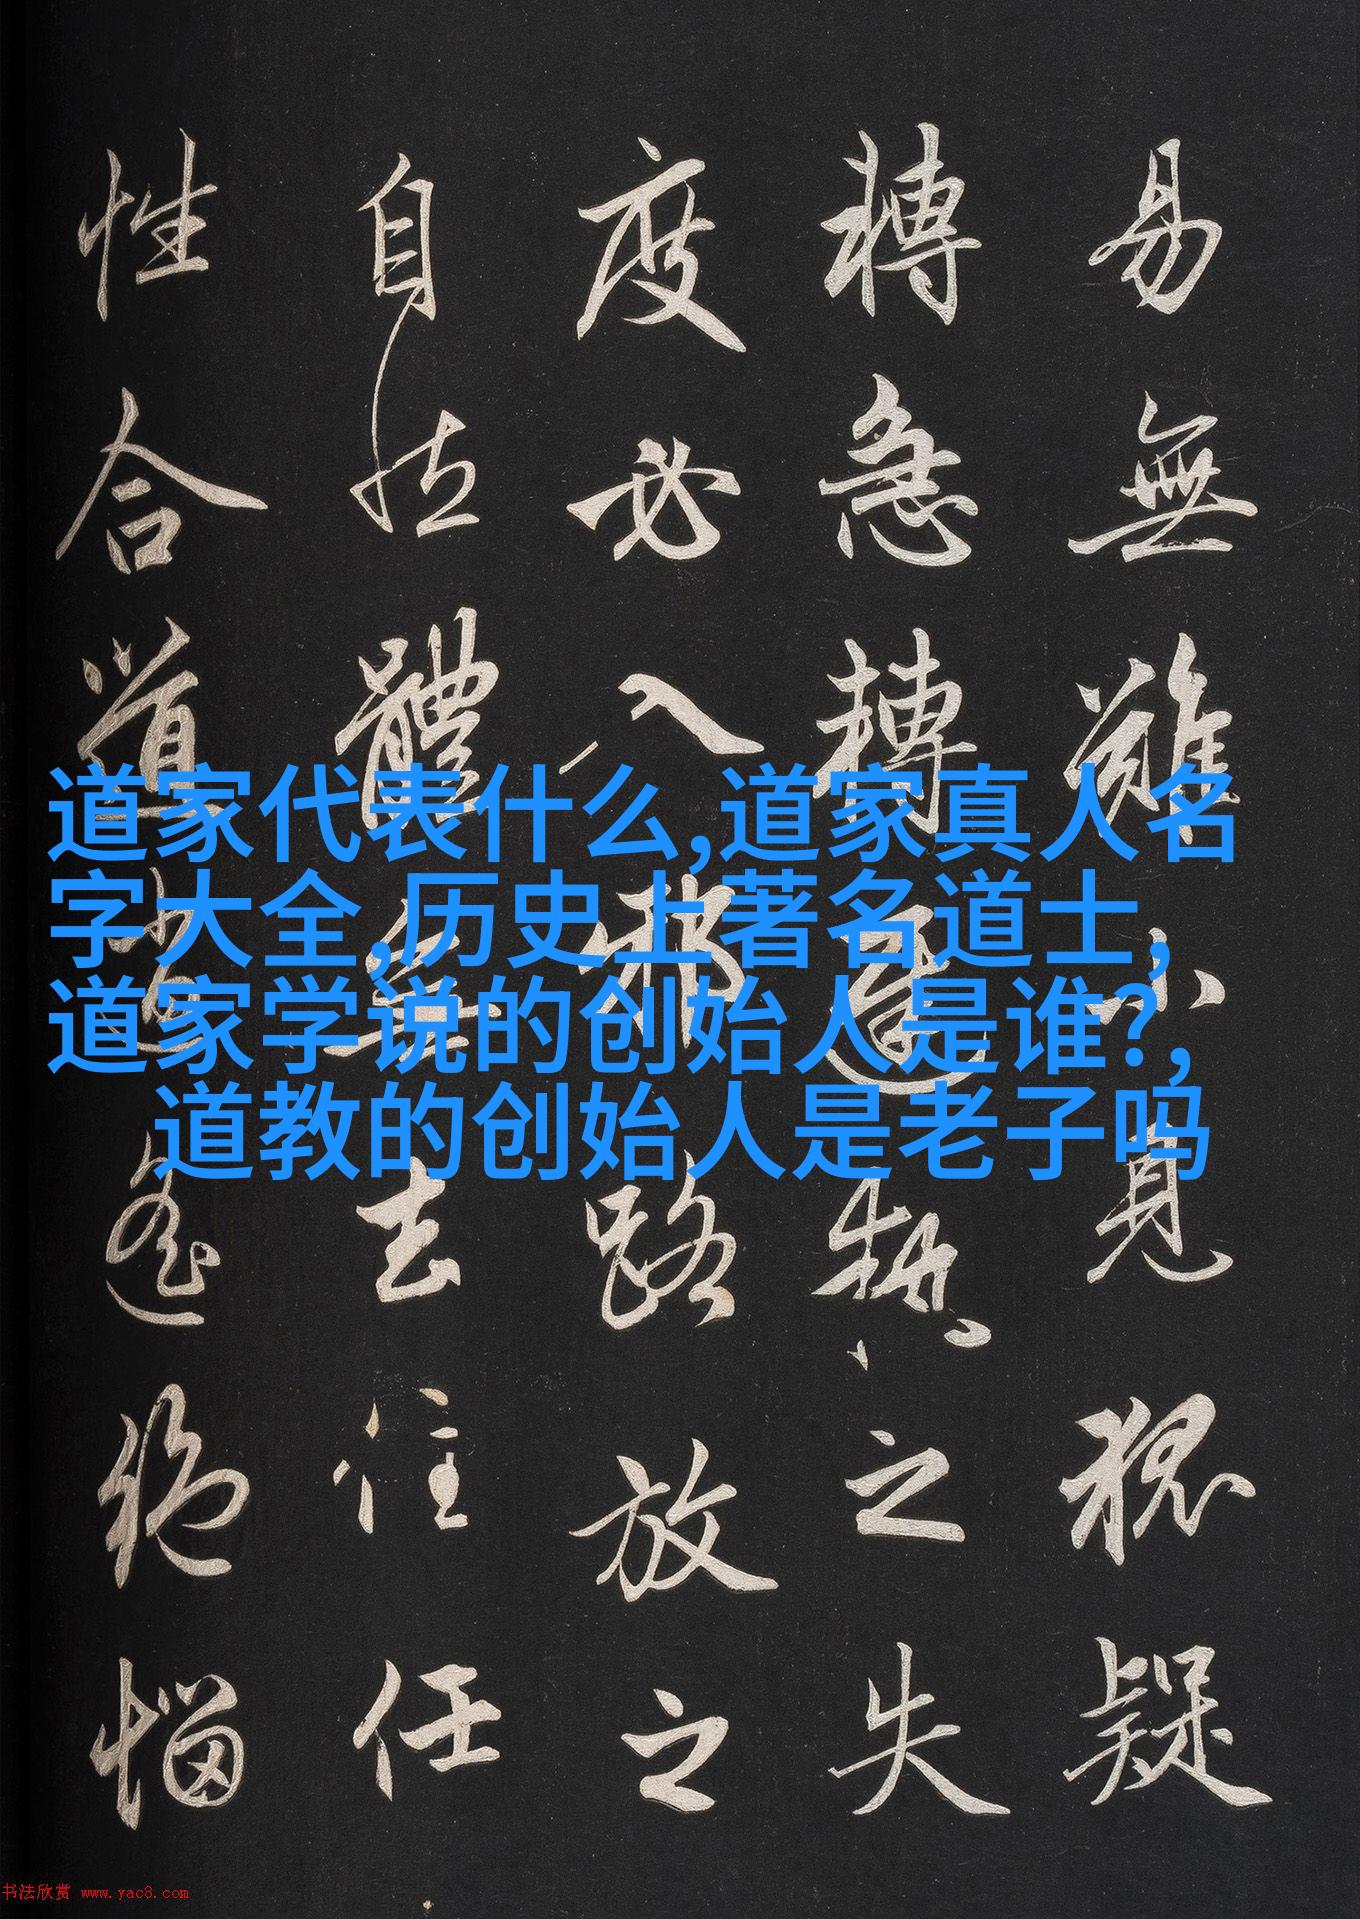 易無難小見狐疑
轉急轉遲執之失
度必入邪路放之
自然體無去住任
性合道逍遙絕惱
道家代表什么,道家真人名
字大全,历史上著名道士,
道家学说的创始人是谁?,
道教的创始人是老子吗
书法欣赏 www.yac8.com